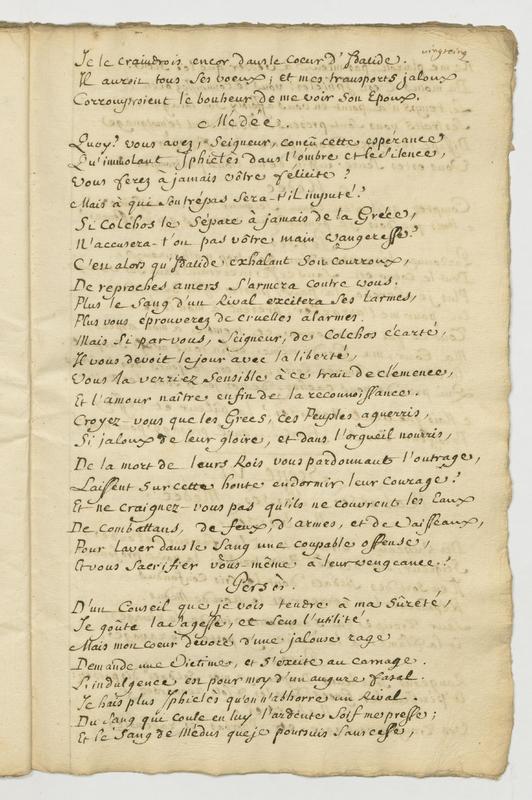 vingtcinq
Je le craindrois encor dans le Coeur d'Idalide.
Il auroit tous ses voeux; et mes transports jaloux
Corromproient le bonheur de me voir son Epoux.
Medée.
Quoy? vous avez, Seigneur, conçu cette espérance
Qu'immolant Iphiclès dans l'ombre et le silence,
Vous serez à jamais vôtre félicité?
Mais à qui son trépas sera-t'il imputé?
Si Colchos le sépare à jamais de la Gréce,
N'accusera-t'on pas vôtre main vangeresse?
C'est alors qu'Idalide exhalant son courroux,
De reproches amers s'armera contre vous.
Plus le sang d'un Rival excitera ses larmes,
Plus vous éprouverez de cruelles alarmes.
Mais si par vous, Seigneur, de Colchos écarté,
Il vous devoit le jour avec la liberté,
Vous la verriez sensible à ce trait de clémence,
Et l'amour naître enfin de la reconnoissance.
Croyez-vous que les Grecs, ces Peuples aguerris,
Si jaloux de leur gloire, et dans l'orgueïl nourris,
De la mort de leurs Rois vous pardonnant l'outrage,
Laissent sur cette honte endormir leur courage?
Et ne craignez-vous pas qu'ils ne couvrent les Eaux
De Combattans, de feux, d'armes, et de Vaisseaux,
Pour laver dans le Sang une coupable offense,
Et vous Sacrifier vous-même à leur vengeance?
Persès.
D'un Conseil que je vois tendre à ma sûreté,
Je goûte la sagesse, et sens l'utilité.
Mais mon coeur dévoré d'une jalouse rage
Demande une Victime, et s'excite au carnage.
L'indulgence est pour moy d'un augure fatal.
Je hais plus Iphiclès qu'on n'abhorre un Rival.
Du Sang qui coule en luy l'ardente soif me presse;
Et le Sang de Médus que je poursuis sans cesse,